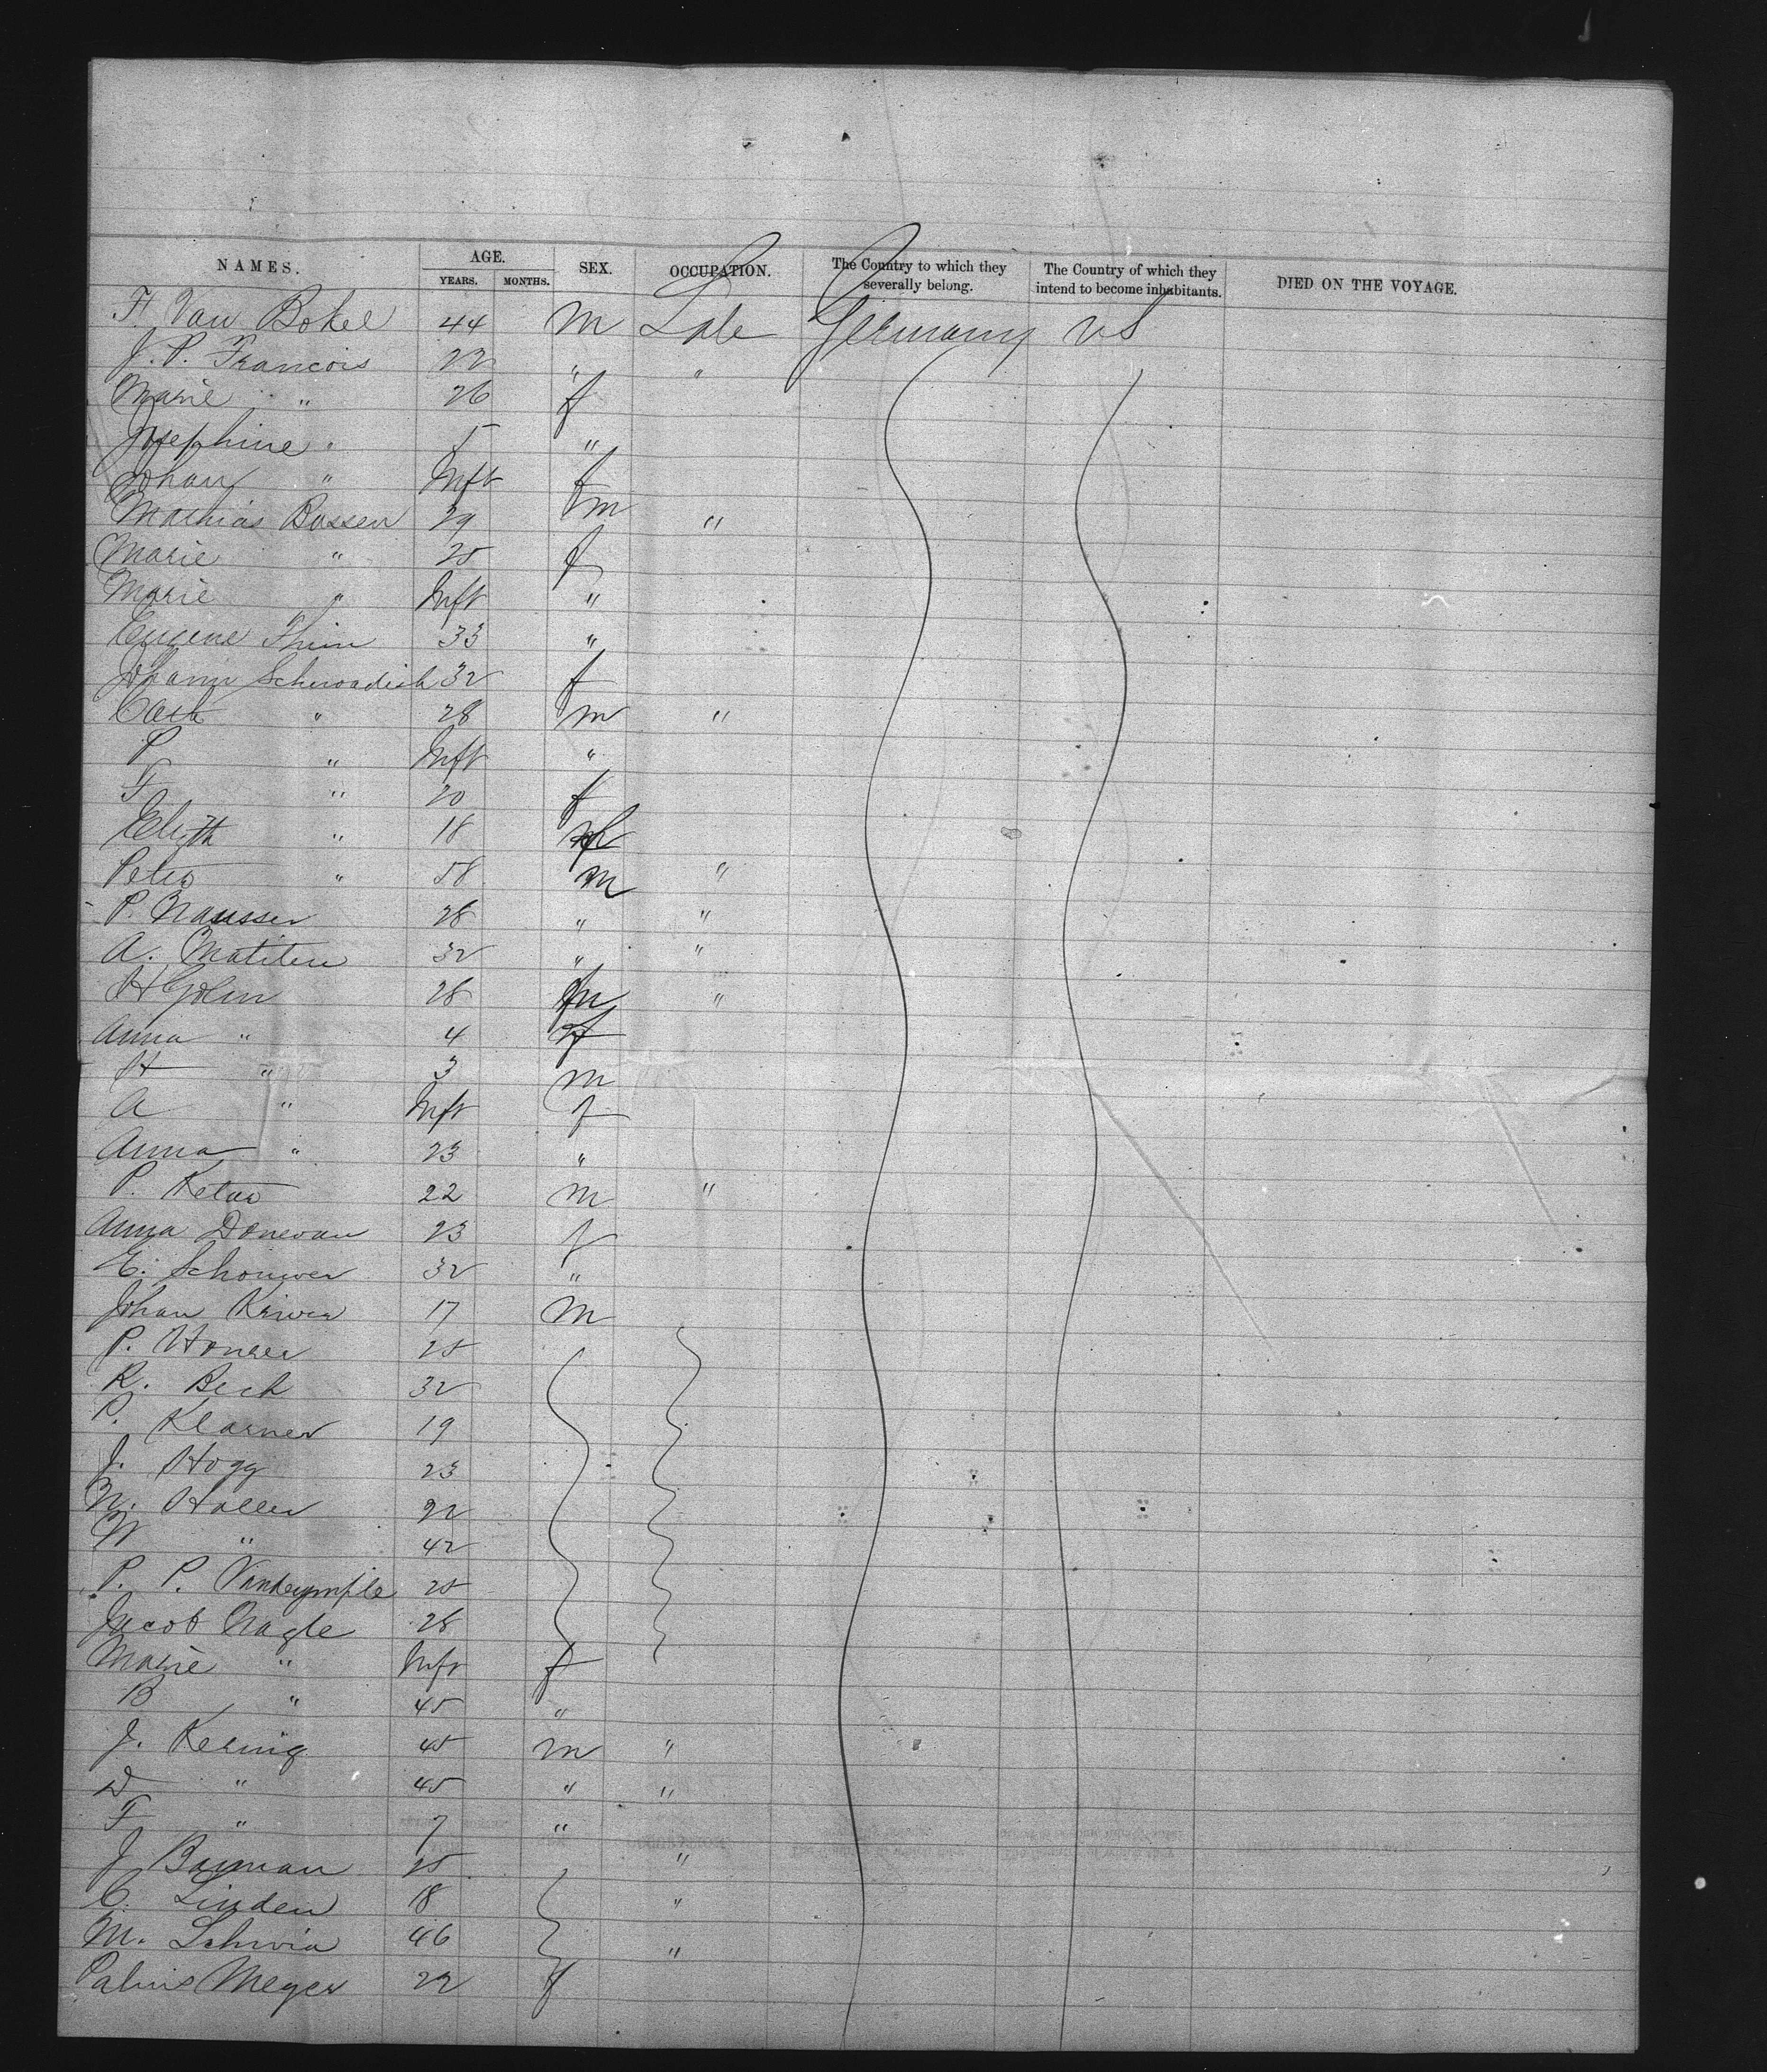 NAMES. AGE. SEX. OCCUPATION. The Country to which they severally belong. The Country of which they intend to become inhabitants. DIED ON THE VOYAGE.
YEARS. MONTHS.
H. Van Bokel 44 m Lab Germany US
J. P. Francois 22 " "
Marie " 26 f
Josephine " 5 "
Johan " Inft f
Mathias Bossen 29 m "
Marie " 25 f
Marie " Inft "
Eugene Thim 33 "
Johann Schwadich 32 f
Cath " 28 m "
P " Inft "
F " 20 f
Elizth " 18 f
Peter " 58 m "
P. Nausser 28 " "
A. Matiten 32 " "
H Golin 28 m "
Anna " 4 f
H " 3 m
A " Inft f
Anna " 23 "
P. Keter 22 m "
Anna Donevan 23 f
E. Schouwer 32 "
Johan Kriver 17 m
P. Honrer 25
R. Beck 32
P. Klarner 19
J. Hogg 23
N. Haller 22
N " 42
P. P. 25
Jacob Nagle 28
Marie " Inft f
B " 45 "
J. Kering 45 m "
D " 45 " "
F " 7 "
J Bauman 25 "
C. Linden 18 "
M. Schwia 46 "
Palms Meyer 22 f